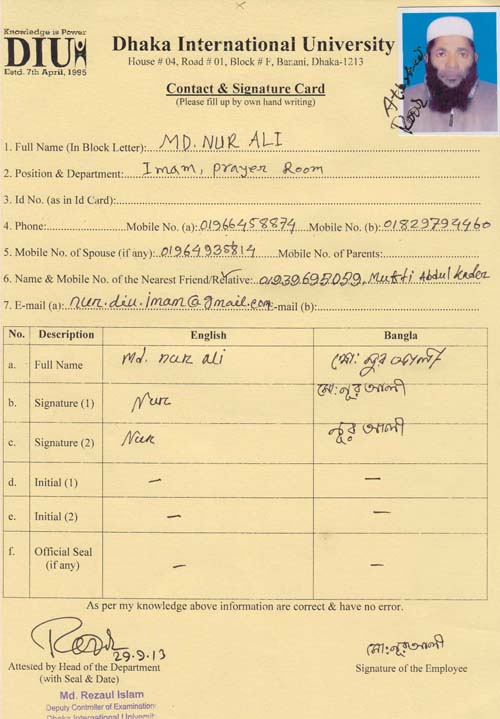 Knowledge is Power
DIU
Estd. 7th April, 1995
Dhaka International University
House # 04, Road # 01, Block # F, Banani, Dhaka-1213
Contact & Signature Card
(Please fill up by own hand writing)
Attested
1. Full Name (In Block Letter): MD. NUR ALI
2. Position & Department: Imam, prayer Room
3. Id No. (as in Id Card):
4. Phone: Mobile No. (a): 01966458874 Mobile No. (b): 01829794460
5. Mobile No. of Spouse (if any): 01964938814 Mobile No. of Parents:
6. Name & Mobile No. of the Nearest Friend/Relative: 01939695059, Mufti Abdul Kader
7. E-mail (a): nur.diu.imam@gmail.com E-mail (b):
No. Description English Bangla
a. Full Name Md. nur ali মো: নুর আলী
b. Signature (1) Nur মো: নুর আলী
c. Signature (2) Nur নুর আলী
d. Initial (1) — —
e. Initial (2) — —
f. Official Seal (if any) — —
As per my knowledge above information are correct & have no error.
29.9.13
মো: নুর আলী
Attested by Head of the Department
(with Seal & Date)
Signature of the Employee
Md. Rezaul Islam
Deputy Controller of Examinations
Dhaka International University